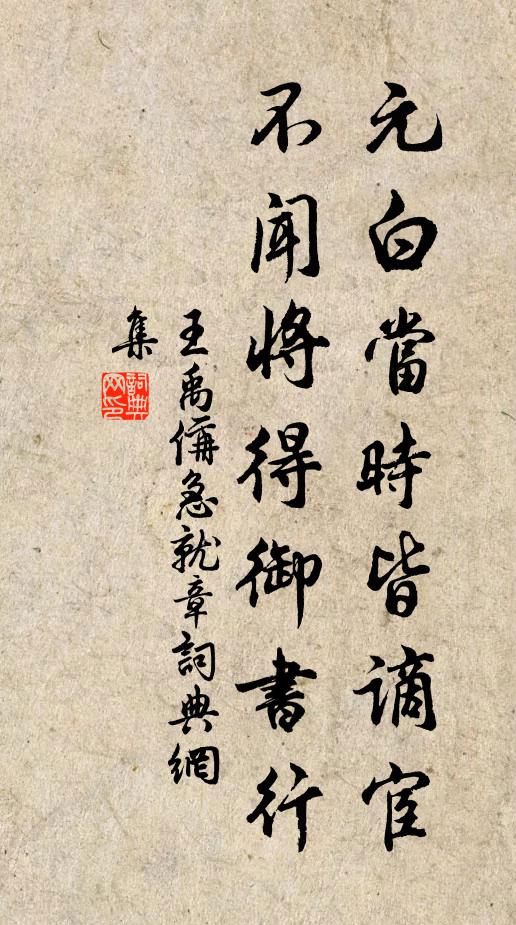 元白當時皆謫宦
不聞將得御書行
王禹偁急就章詞典網
集
詞典
網印